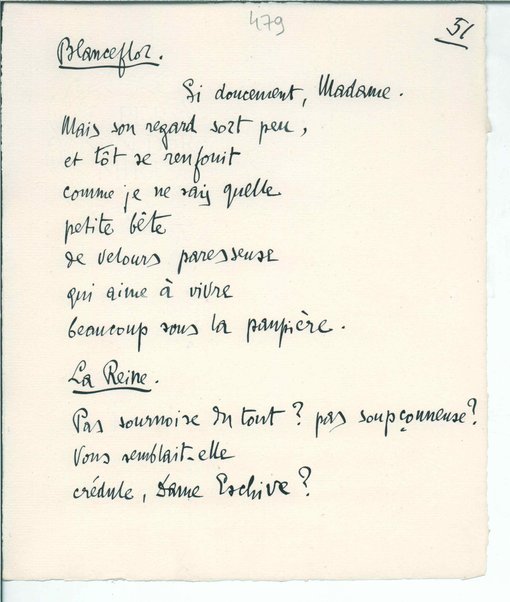 479
51
Blanceflor.
Si doucement, Madame.
Mais son regard sort peu,
et tôt se renfouit
comme je ne sais quelle
petite bête
de velours paresseuse
qui aime à vivre
beaucoup sous la paupière.
La Reine.
Pas sournoise du tout ? pas soupçonneuse ?
Vous semblait-elle
crédule, Dame Eschive ?